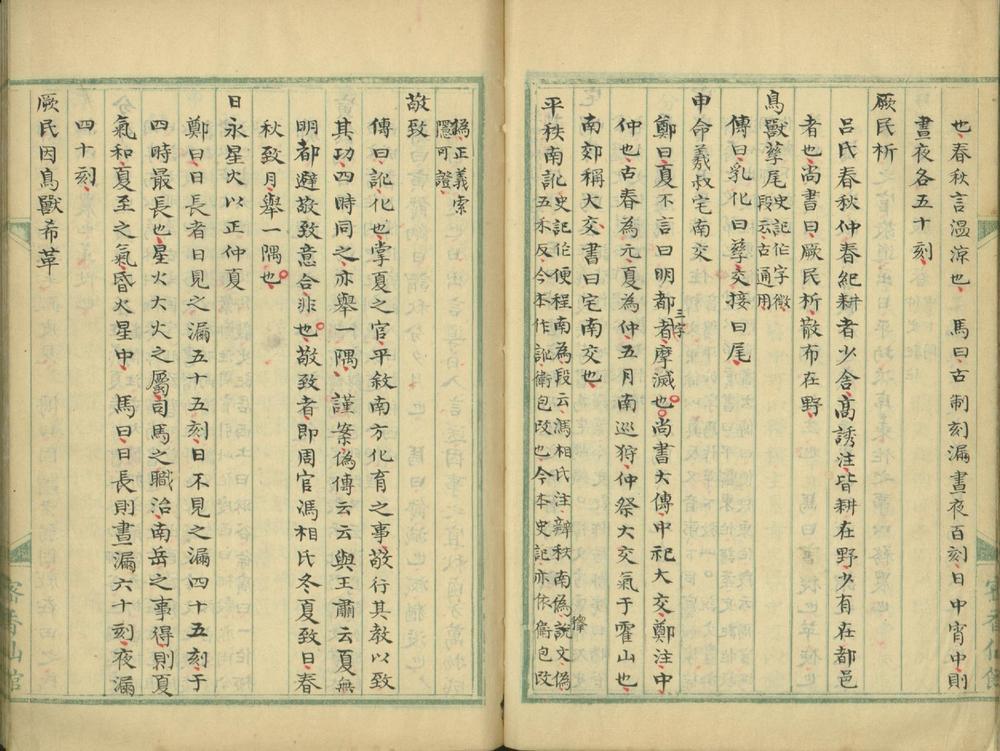 也春秋言温涼也　馬曰古制刻漏晝夜百刻日中宵中則
晝夜各五十刻
厥民析
呂氏春秋仲春紀耕者少舍高誘注皆耕在野少有在都邑
者也尚書曰厥民析散布在野
鳥獸孳尾史記作字微
段云古通用
傳曰乳化曰孳交接曰尾
申命羲叔宅南交
鄭曰夏不言曰明都三字者摩滅也尚書大傳中祀大交鄭注中
仲也古春為元夏為仲五月南巡狩仲祭大交氣于霍山也
南郊稱大交書曰宅南交也
平秩南訛史記作便程南為段云馮相氏注辯秩南偽說文偽
五禾反今本作訛衛包改也今本史記亦依衛包改
為正義索
隱可證
敬致
傳曰訛化也掌夏之官平敘南方化育之事敬行其教以致
其功四時同之亦舉一隅謹案偽傳云云與王肅云夏無
明都避敬致意合非也敬致者即周官馮相氏冬夏致日春
秋致月舉一隅也
日永星火以正仲夏
鄭曰日長者日見之漏五十五刻日不見之漏四十五刻于
四時最長也星火大火之屬司馬之職治南岳之事得則夏
氣和夏至之氣昏火星中　馬曰日長則晝漏六十刻夜漏
四十刻
厥民因鳥獸希革